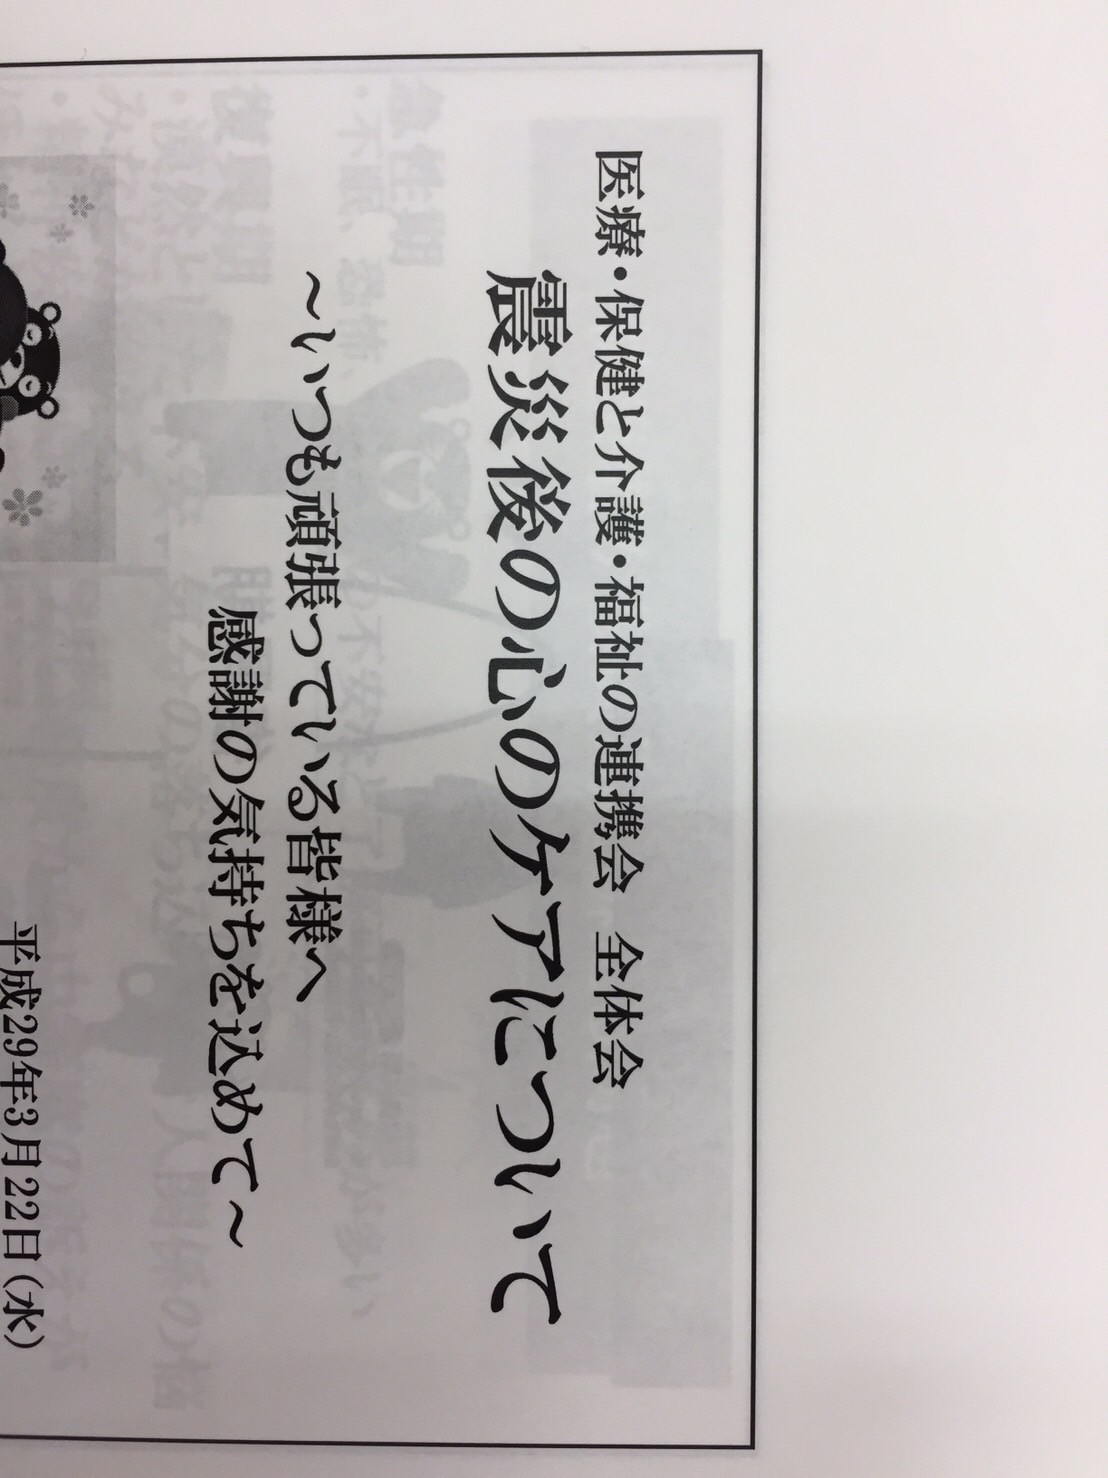 医療・保健と介護・福祉の連携会　全体会
震災後の心のケアについて
～いつも頑張っている皆様へ
感謝の気持ちを込めて～
平成29年3月22日（水）